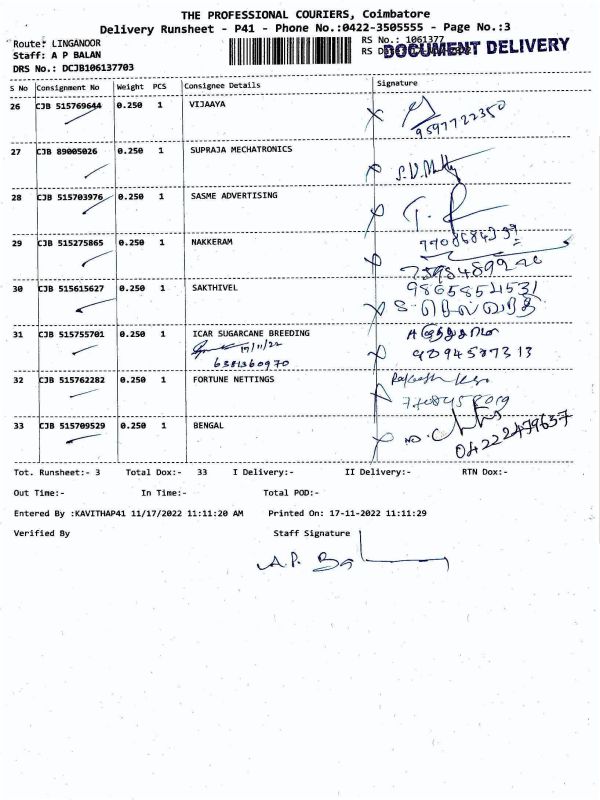 THE PROFESSIONAL COURIERS, Coimbatore
Delivery Runsheet - P41 - Phone No.:0422-3505555 - Page No.:3
Route: LINGANOOR
RS No.: 1061377
Staff: A P BALAN
RS
DOCUMENT DELIVERY
DRS No.: DCJB106137703
S No Consignment No Weight PCS Consignee Details Signature
26 CJB 515769644 0.250 1 VIJAAYA
9597722350
27 CJB 89005026 0.250 1 SUPRAJA MECHATRONICS
28 CJB 515703976 0.250 1 SASME ADVERTISING
29 CJB 515275865 0.250 1 NAKKERAM
30 CJB 515615627 0.250 1 SAKTHIVEL
9865854531
31 CJB 515755701 0.250 1 ICAR SUGARCANE BREEDING
17/11/22
6381360970
32 CJB 515762282 0.250 1 FORTUNE NETTINGS
33 CJB 515709529 0.250 1 BENGAL
04222479637
Tot. Runsheet:- 3 Total Dox:- 33 I Delivery:- II Delivery:- RTN Dox:-
Out Time:- In Time:- Total POD:-
Entered By :KAVITHAP41 11/17/2022 11:11:20 AM Printed On: 17-11-2022 11:11:29
Verified By Staff Signature
A.P. Ba